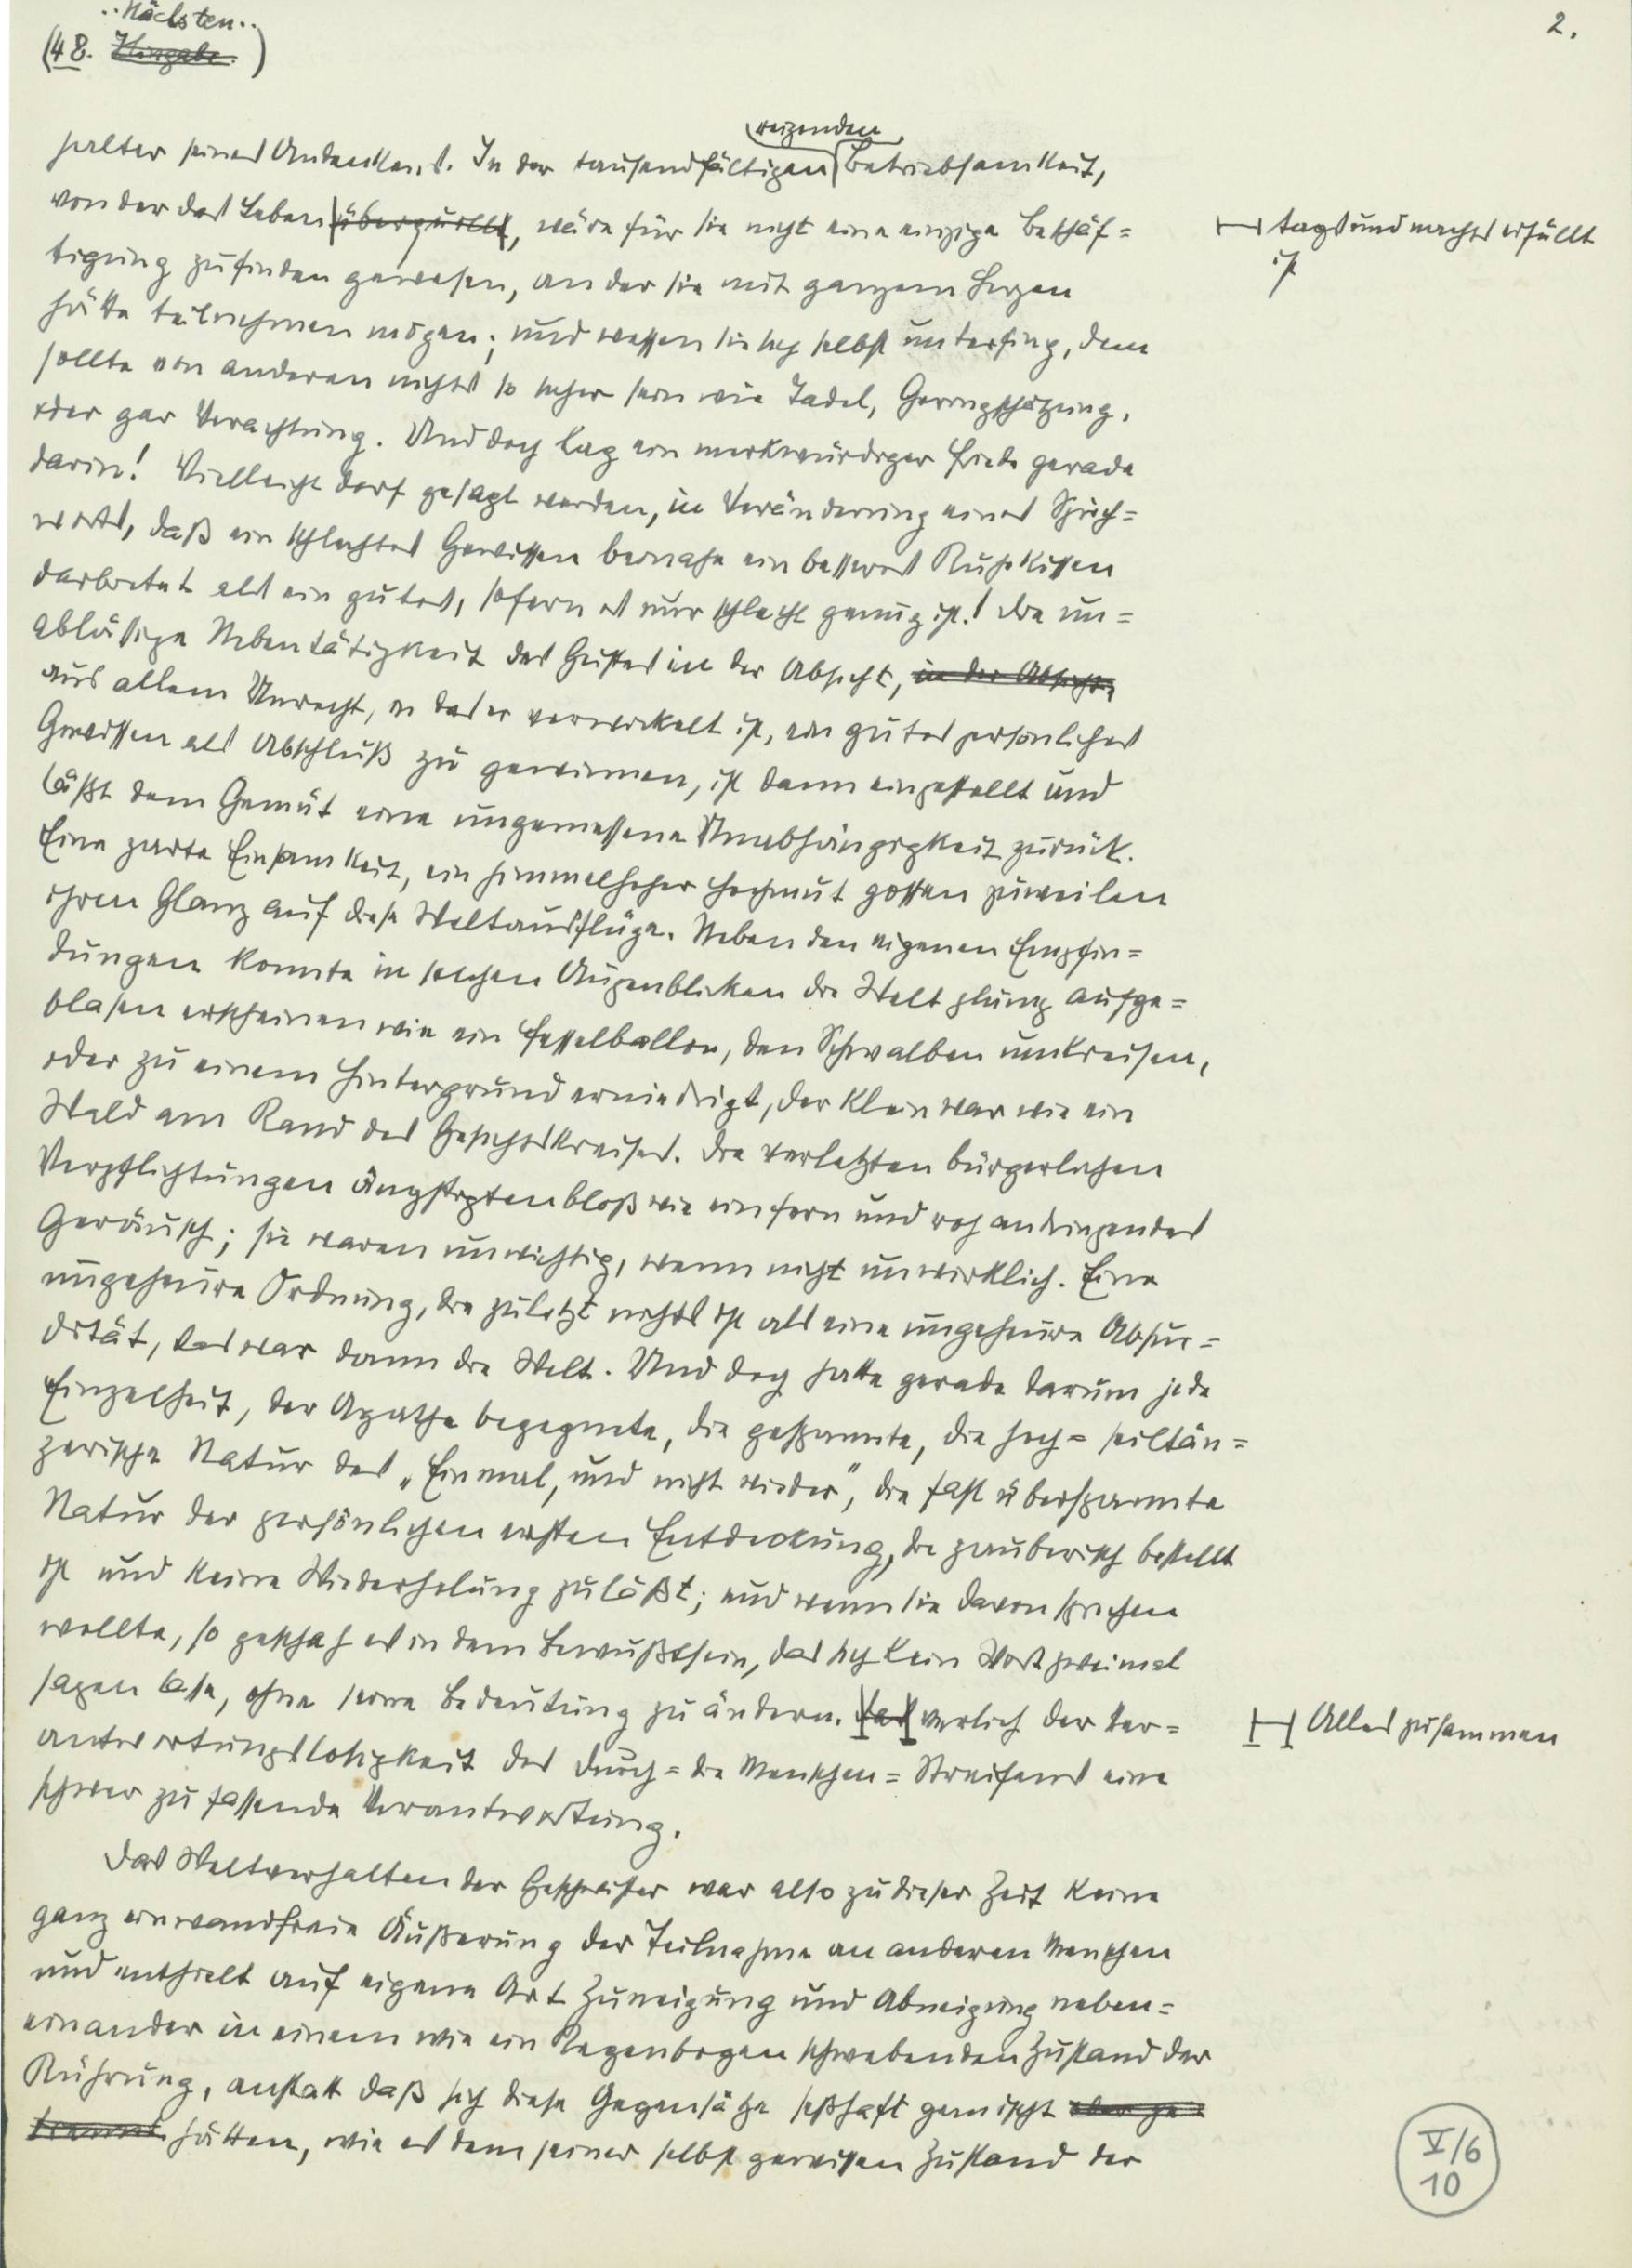 ..Nächsten..
(48. Hingabe.)
2.
reizenden
halter seines Andenkens. In der tausendfältigen Betriebsamkeit,
von der das Leben überquillt, wäre für sie nicht eine einzige Beschäf=
tags und nachts erfüllt
ist
tigung zu finden gewesen, an der sie mit ganzem Herzen
hätte teilnehmen mögen; und wessen sie sich selbst unterfing, dem
sollte von anderen nichts so sicher sein wie Tadel, Geringschätzung,
oder gar Verachtung. Und doch lag ein merkwürdiger Friede gerade
darin! Vielleicht darf gesagt werden, in Veränderung eines Sprich=
worts, daß ein schlechtes Gewissen beinahe ein besseres Ruhekissen
darbietet als ein gutes, sofern es nur schlecht genug ist! Die un=
ablässige Nebentätigkeit des Geistes in der Absicht, in der Absicht,
aus allem Unrecht, in das er verwickelt ist, ein gutes persönliches
Gewissen als Abschluß zu gewinnen, ist dann eingestellt und
läßt dem Gemüt eine ungemessene Unabhängigkeit zurück.
Eine zarte Einsamkeit, ein himmelhoher Hochmut gossen zuweilen
ihren Glanz auf diese Weltausflüge. Neben den eigenen Empfin=
dungen konnte in solchen Augenblicken die Welt plump aufge=
blasen erscheinen wie ein Fesselballon, den Schwalben umkreisen,
oder zu einem Hintergrund erniedrigt, der klein war wie ein
Wald am Rand des Gesichtskreises. Die verletzten bürgerlichen
Verpflichtungen ängstigten bloß wie ein fern und roh andringendes
Geräusch; sie waren unwichtig, wenn nicht unwirklich. Eine
ungeheure Ordnung, die zuletzt nichts ist als eine ungeheure Absur=
dität, das war dann die Welt. Und doch hatte gerade darum jede
Einzelheit, der Agathe begegnete, die gespannte, die hoch= seiltän=
zerische Natur des „Einmal, und nicht wieder", die fast überspannte
Natur der persönlichen ersten Entdeckung, die zauberisch bestellt
ist und keine Wiederholung zuläßt; und wenn sie davon sprechen
wollte, so geschah es in dem Bewußtsein, das sich kein Wort zweimal
sagen lasse, ohne seine Bedeutung zu ändern. Das verlieh der Ver=
Alles zusammen
antwortungslosigkeit des Durch=die Menschen=Streifens eine
schwer zu fassende Verantwortung.
Das Weltverhalten der Geschwister war also zu dieser Zeit keine
ganz einwandfreie Äußerung der Teilnahme an anderen Menschen
und enthielt auf eigene Art Zuneigung und Abneigung neben=
einander in einem wie ein Regenbogen schwebenden Zustand der
Rührung, anstatt daß sich diese Gegensätze seßhaft gemischt oder ge=
trennt hätten, wie es dem seiner selbst gewissen Zustand der
V/6
10